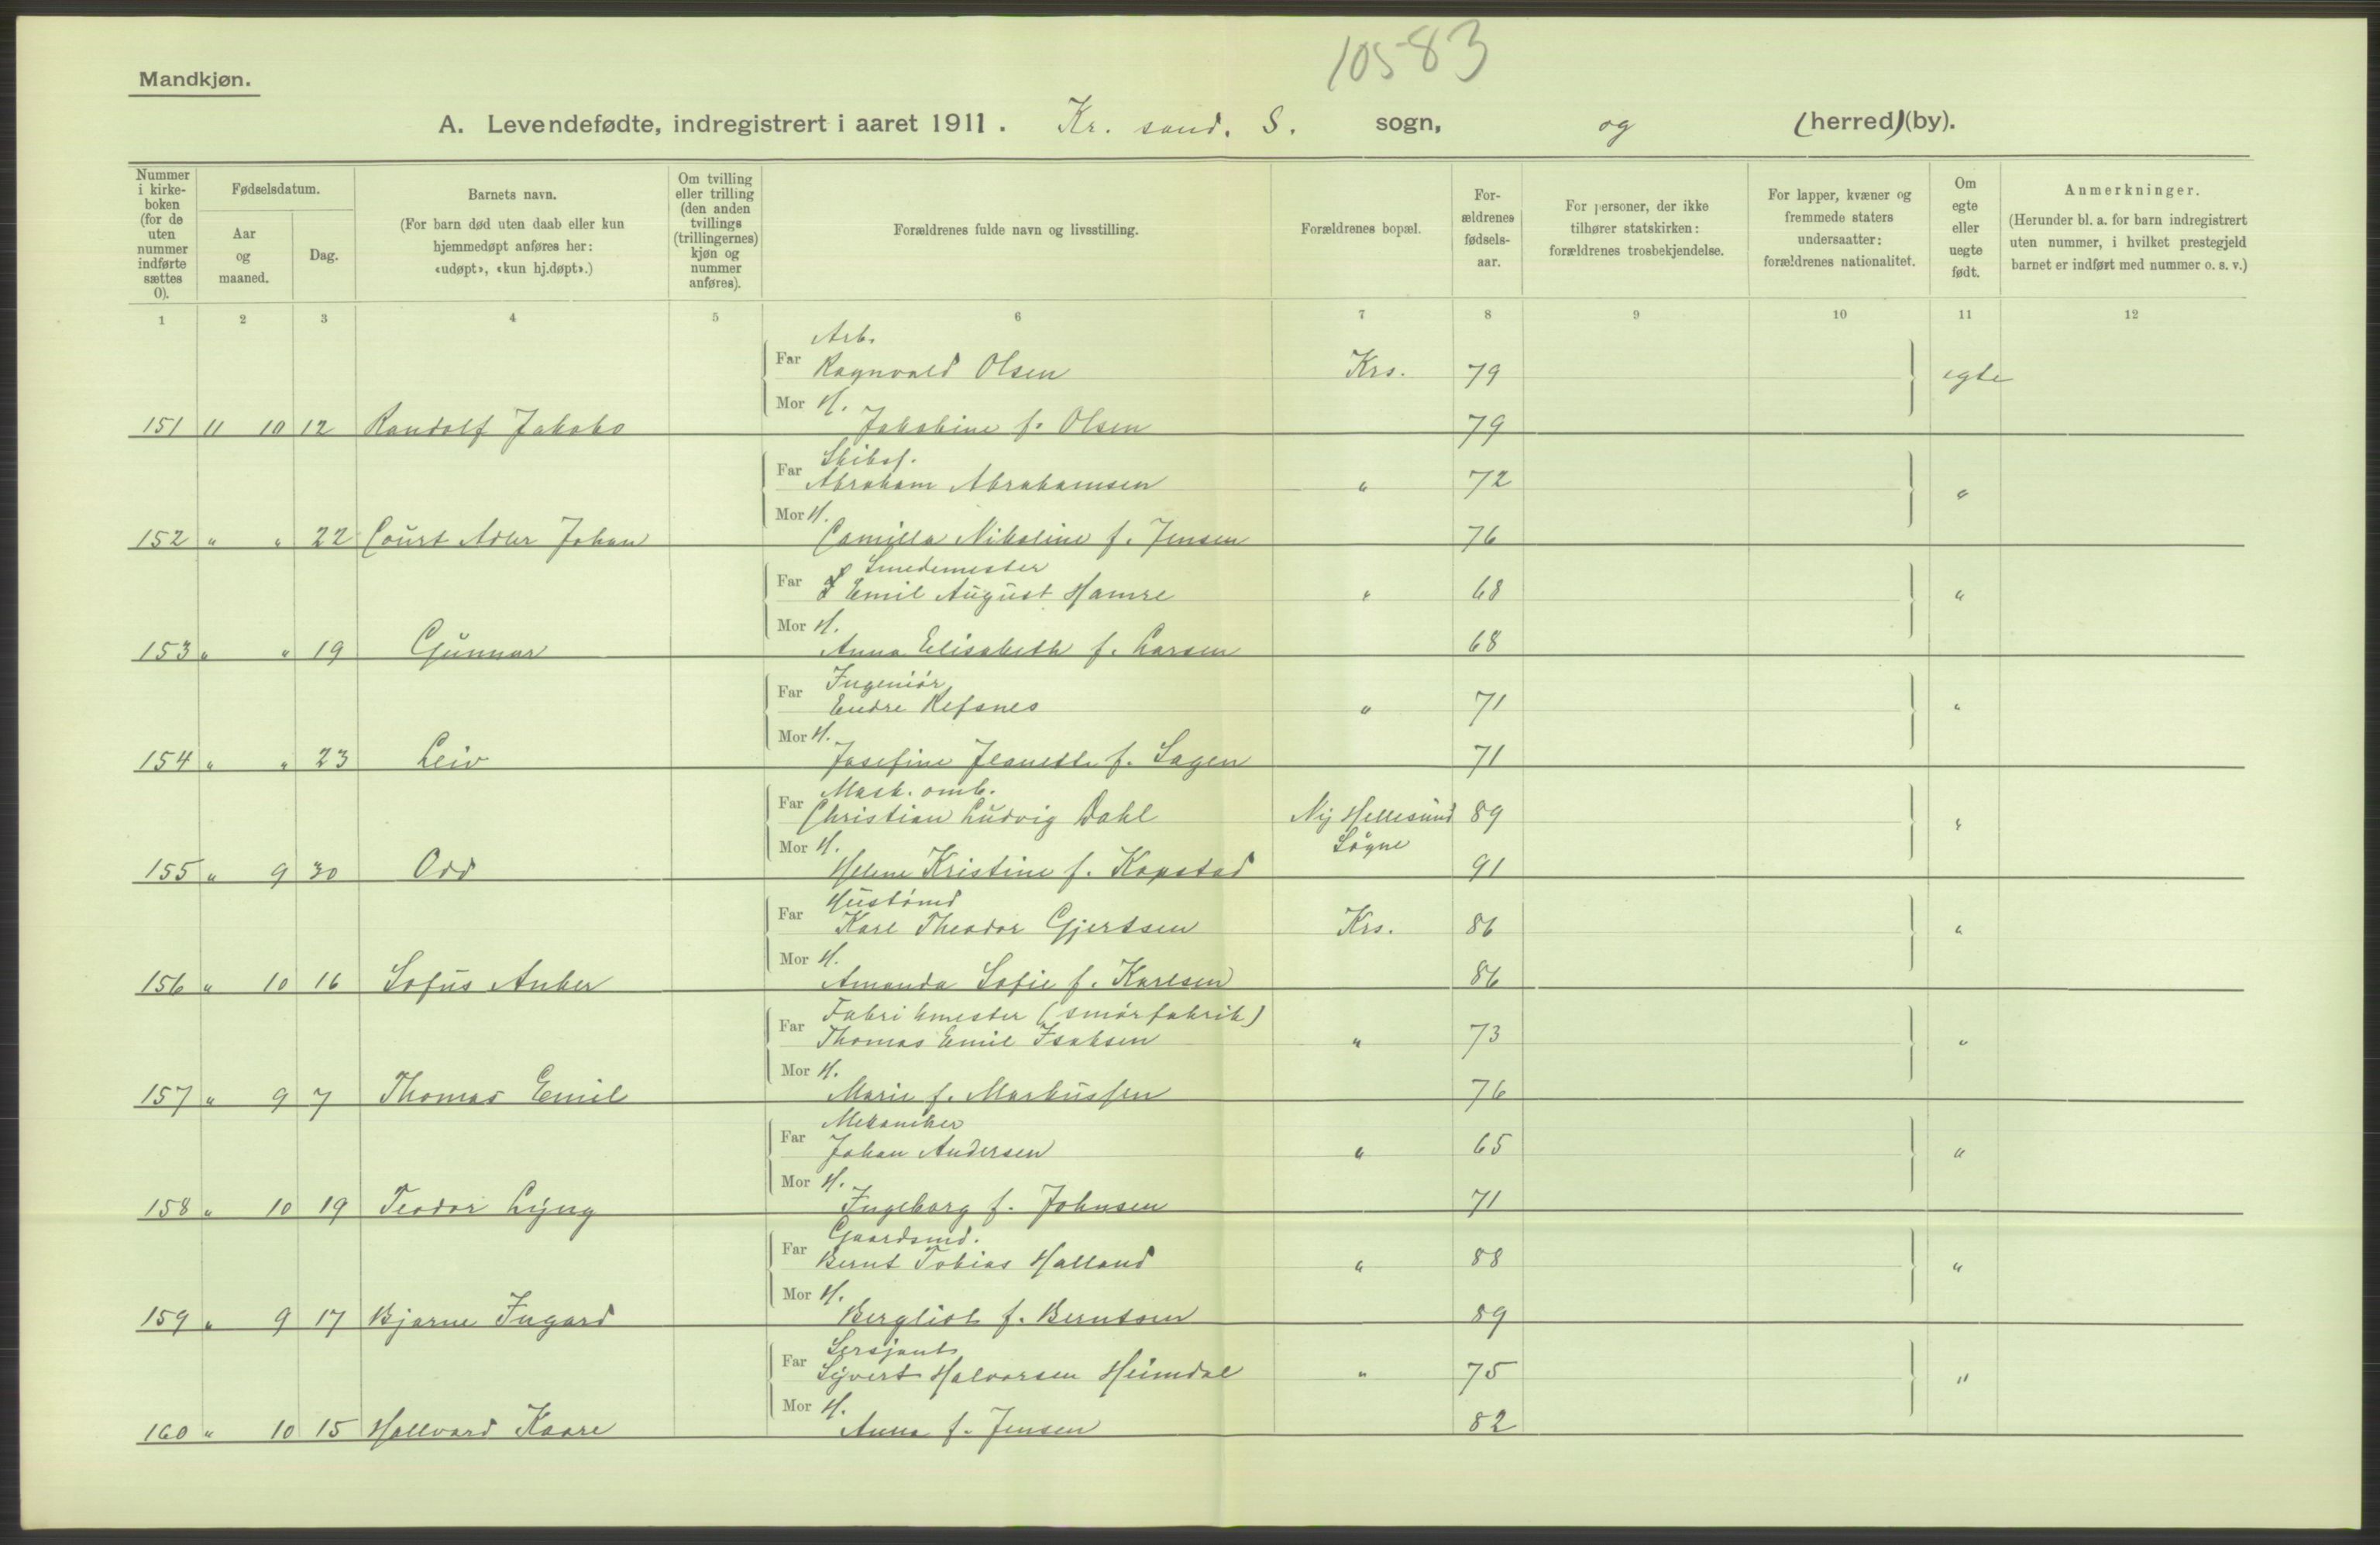 10583
Mandkjøn.
A. Levendefødte, indregistrert i aaret 1911. Kr. sand. S. sogn, og (herred) (by).
Nummer i kirkeboken (for de uten nummer indførte sættes 0).
Fødselsdatum.
Aar og maaned.
Dag.
Barnets navn.
(For barn død uten daab eller kun hjemmedøpt anføres her: «udøpt», «kun hj.døpt».)
Om tvilling eller trilling (den anden tvillings (trillingernes) kjøn og nummer anføres).
Forældrenes fulde navn og livsstilling.
Forældrenes bopæl.
Forældrenes fødselsaar.
For personer, der ikke tilhører statskirken: forældrenes trosbekjendelse.
For lapper, kvæner og fremmede staters undersaatter: forældrenes nationalitet.
Om egte eller uegte født.
Anmerkninger.
(Herunder bl. a. for barn indregistrert uten nummer, i hvilket prestegjeld barnet er indført med nummer o. s. v.)
1 2 3 4 5 6 7 8 9 10 11 12
Arb.
Far Ragnvald Olsen Krs. 79 egte
Mor H.
151 11 10 12 Randolf Jakobo Jakobine f. Olsen 79
Far Abraham Abrahamsen " 72 "
Mor H.
152 " " 22 Court Adler Johan Camilla Nikoline f. Jensen 76
Smedemester
Far Emil August Hamre " 68 "
Mor H.
153 " " 19 Gunnar Anna Elisabeth f. Larsen 68
Ingeniør
Far Endre Refsnes " 71 "
Mor H.
154 " " 23 Leiv Josefine Jeanette f. Sagen 71
Mask. omb.
Far Christian Ludvig Dahl Ny Hellesund 89 "
Mor H. Søgne
155 " 9 30 Odd Helene Kristine f. Kapstad 91
Hustømd
Far Karl Theodor Gjertsen Krs. 86 "
Mor H.
156 " 10 16 Sofus Anker Amanda Sofie f. Karlsen 86
Fabrikmester (smørfabrik)
Far Thomas Emil Isaksen " 73 "
Mor H.
157 " 9 7 Thomas Emil Marie f. Markussen 76
Mekaniker
Far Johan Andersen " 65 "
Mor H.
158 " 10 19 Teodor Lyng Ingeborg f. Johnsen 71
Gaardsmd.
Far Bernt Tobias Halland " 88 "
Mor H.
159 " 9 17 Bjarne Ingard Bergliot f. Berntsen 89
Sersjant
Far Syvert Halvorsen Heimdal " 75 "
Mor H.
160 " 10 15 Hallvard Kaare Anna f. Jensen 82